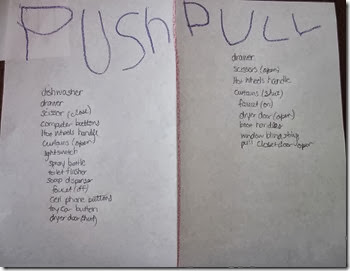 PUSH
dishwasher
drawer
scissor (close)
computer buttons
Hot Wheels handle
curtains (open)
lightswitch
spray bottle
toilet flusher
soap dispenser
faucet (off)
cell phone buttons
toy car button
dryer door (shut)
PULL
drawer
scissors (open)
Hot Wheels handle
curtains (shut)
faucet (on)
dryer door (open)
door
window blind string
pull closet door open